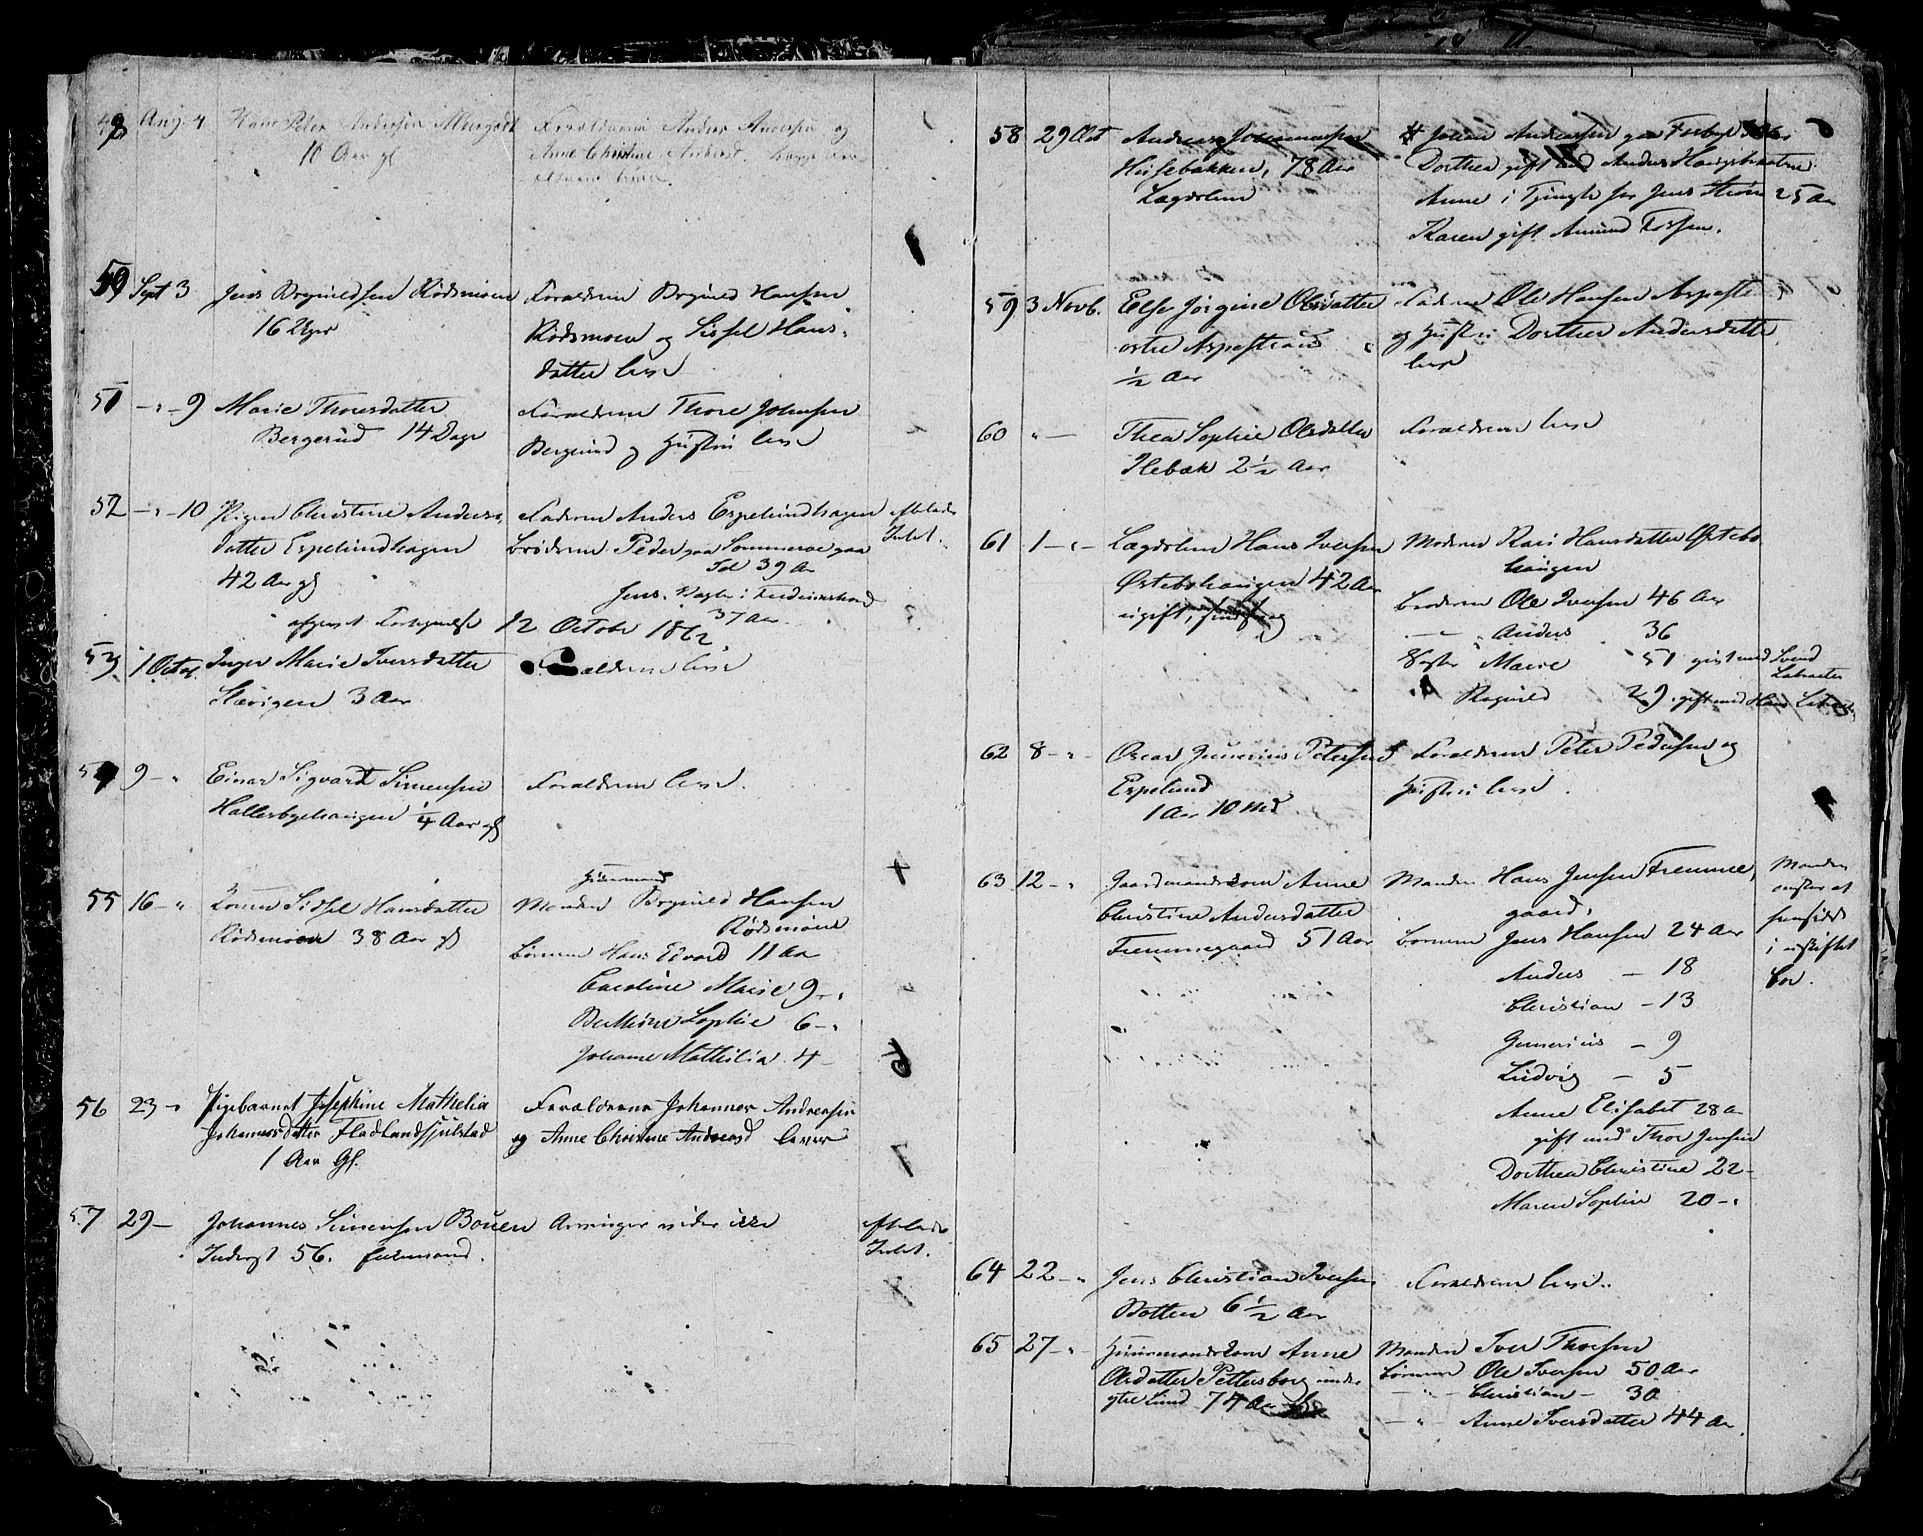 49 Aug. 4 Hans Peter Andersen
10 Aar gl
Forældrene Anders Andersen og
Anne Christine Andersd. begge
50 Sept 3 Jens Brynildsen Rødsmoen
16 Uger
Forældrene Brynild Hansen
Rødsmoen og Sissel Hans-
datter leve
51 -"- 9 Marie Thoresdatter
Bergerud 14 Dage
Forældrene Thore Johnsen
Bergerud og Hustru leve
52 -"- 10 Pigen Christine Anders-
datter Espelundhagen
42 Aar gl
Faderen Anders Espelundhagen
Brødrene Peder paa Sommeroe paa
39 Aar
Jens Bager i Frederikshald
37 Aar
Intet.
afgivet Fortegnelse 12 October 1862
53 1 Octob. Inger Marie Iversdatter
3 Aar
Forældrene leve
54 9 - " Einar Sigvard Simensen
Hallerbyehaugen 1/4 Aar gl
Forældrene leve.
55 16 - " Konen Sidsel Hansdatter
Rødsmoen 38 Aar gl
Huusmand
Manden Brynild Hansen
Rødsmoen
Børnene Hans Edvard 11 Aar
Caroline Marie 9 - "
Sophie 6 - "
Johanne Mathilia 4 -
56 23 - " Pigebarnet Josephine Mathelia
Johannesdatter
1 Aar Gl.
Forældrene Johannes Andersen
og Anne Christine Andersd lever
57 29 - Johannes Simensen Bouen
Inderst 56.
Arvinger vides ikke
Intet.
58 29 Oct Andreas
78 Aar
Lægdslem
Johan Andersen paa
Dorthea gift med Anders
Anne i Tjeneste hos Jens 25 Aar
Karen gift Amund Fossen.
59 3 Novb. Else Jørgine Olsdatter
østre Aspestrand
1/2 Aar
Faderen Ole Hansen Aspestr
og Hustru Dorthea Andersdatter
leve
60 " - Thea Sophie Olsdatter
Ilebæk 2 1/2 Aar
Forældrene leve
61 1 - " - Lægdslem Hans Iversen
Østebøhaugen 42 Aar
ugift,
Moderen Kari Hansdatter Østebø
haugen
Brødrene Ole Iversen 46 Aar
- " - Anders 36
Søster Marie 51 gift med Svend
Ragnild 29 gift med Hans
62 8 - " Oscar Gunerius Petersen
Espelund
1 Aar 10 Md
Forældrene Peter Pedersen og
Hustru leve.
63 12 - " Gaardmandskonen Anne
Christine Andersdatter
Fremmegaard 51 Aar
Manden Hans Jensen Fremme-
gaard,
Børnene Jens Hansen 24 Aar
Anders - 18
Christian - 13
Gunerius - 9
Ludvig - 5
Anne Elisabet 28 a
gift med Thor Jensen
Dorthea Christine 22 -
Maren Sophie 20 - "
Manden
ønsker at
hensidde
i uskiftet
Bo.
64 22 - " Jens Christian Iversen
Botten 6 1/2 Aar
Forældrene leve.
65 27 - " Huusmandskone Anne
Olsdatter Pettersborg under
ytre Lund 74 Aar
Manden Iver Thoresen
Børnene Ole Iversen 50 Aar
- " - Christian - 30
- " - Anne Iversdatter 44 Aar.